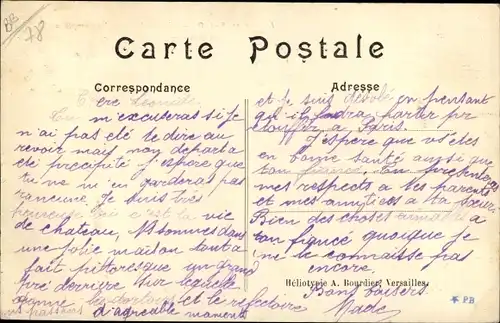 BB
78
Carte Postale
Correspondance
Adresse
Chère Léonide,
Tu m'excuseras si je
n'ai pas été te dire au
revoir mais mon départ a
été précipité j'espère que
tu ne m'en garderas pas
rancune. Je suis très
heureuse ici c'est la vie
de chateau, Ns sommes dans
une jolie maison tout à
fait pittoresque un grand
pré derrière sur lequel
donne les dortoirs et le réfectoire
ns passons d'agréable moments
et je suis désolée en pensant
qu'il faudra partir pr
étouffer à Paris.
J'espère que vs êtes
en bonne santé ainsi que
ton fiancé. Tu présenteras
mes respects a tes parents
et mes amitiés a ta sœur
Bien des choses a
ton fiancé quoique je
ne le connaisse pas
encore.
Bons baisers
Héliotypie A. Bourdier, Versailles.
PB